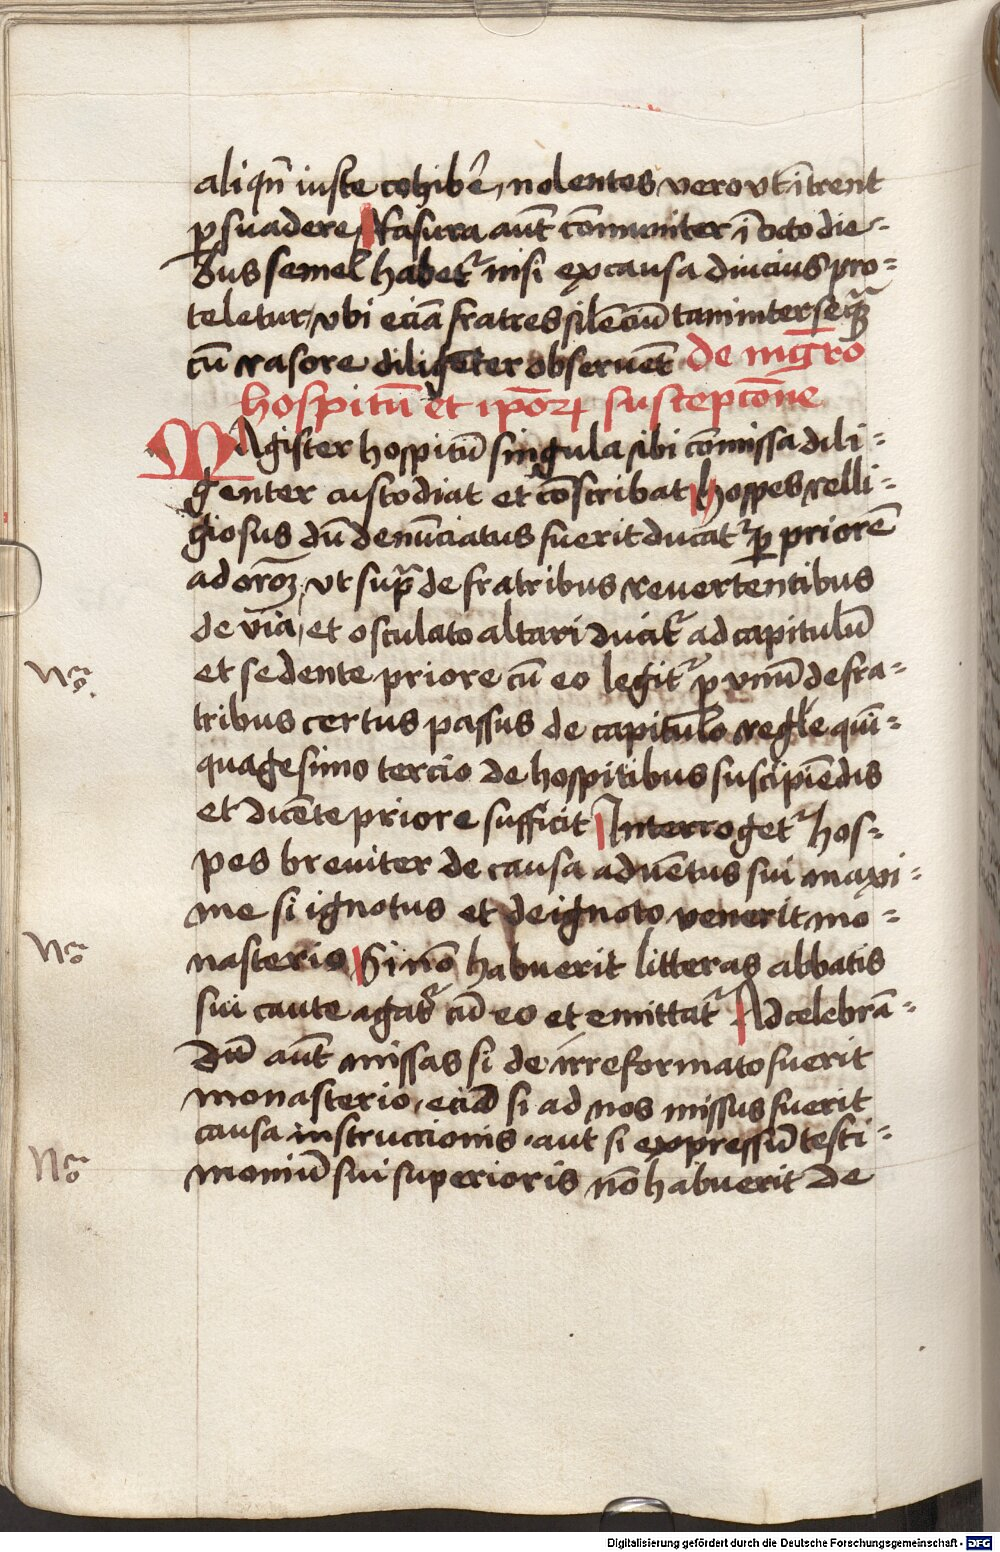 aliqñ iuste cohibe͛, nolentes vero vt ītrent
ꝑsuadere Rasura aut̄ cōmuniter ī octo die-
bus semel habet᷑ nisi ex causa diucius pro-
teletur, vbi eciā fratres silēciū tam inter seqꝫ
cū rasore diligēter obseruēt de mgr̄o
hospitū et ipōꝝ suscepcōne
MAgister hospitū singula sibi cōmissa dili-
genter custodiat et cōscribat Hospes relli-
giosus dū denūciatus fuerit ducat᷑ ꝑ priorē
ad orōꝫ, vt supͣ de fratribus reuertentibus
de via, et osculato altari ducit᷑ ad capitulū
et sedente priore cū eo legit᷑ ꝑ vnū de fra-
tribus certus passus de capitulo regl̄e qui-
quagesimo tercio de hospitibus suscipiēdis
et dicēte priore sufficit Interroget᷑ hos-
pes breuiter de causa aduētus sui maxi-
me si ignotus et de ignoto venerit mo-
nasterio Si nō habuerit litteras abbatis
sui caute agat᷑ cū eo et emittat᷑ Ad celebrā-
dū aut̄ missas si de irreformato fuerit
monasterio, eciā si ad nos missus fuerit
causa instruccionis, aut si expressū testi-
moniū sui superioris nō habuerit de
Digitalisierung gefördert durch die Deutsche Forschungsgemeinschaft - DFG